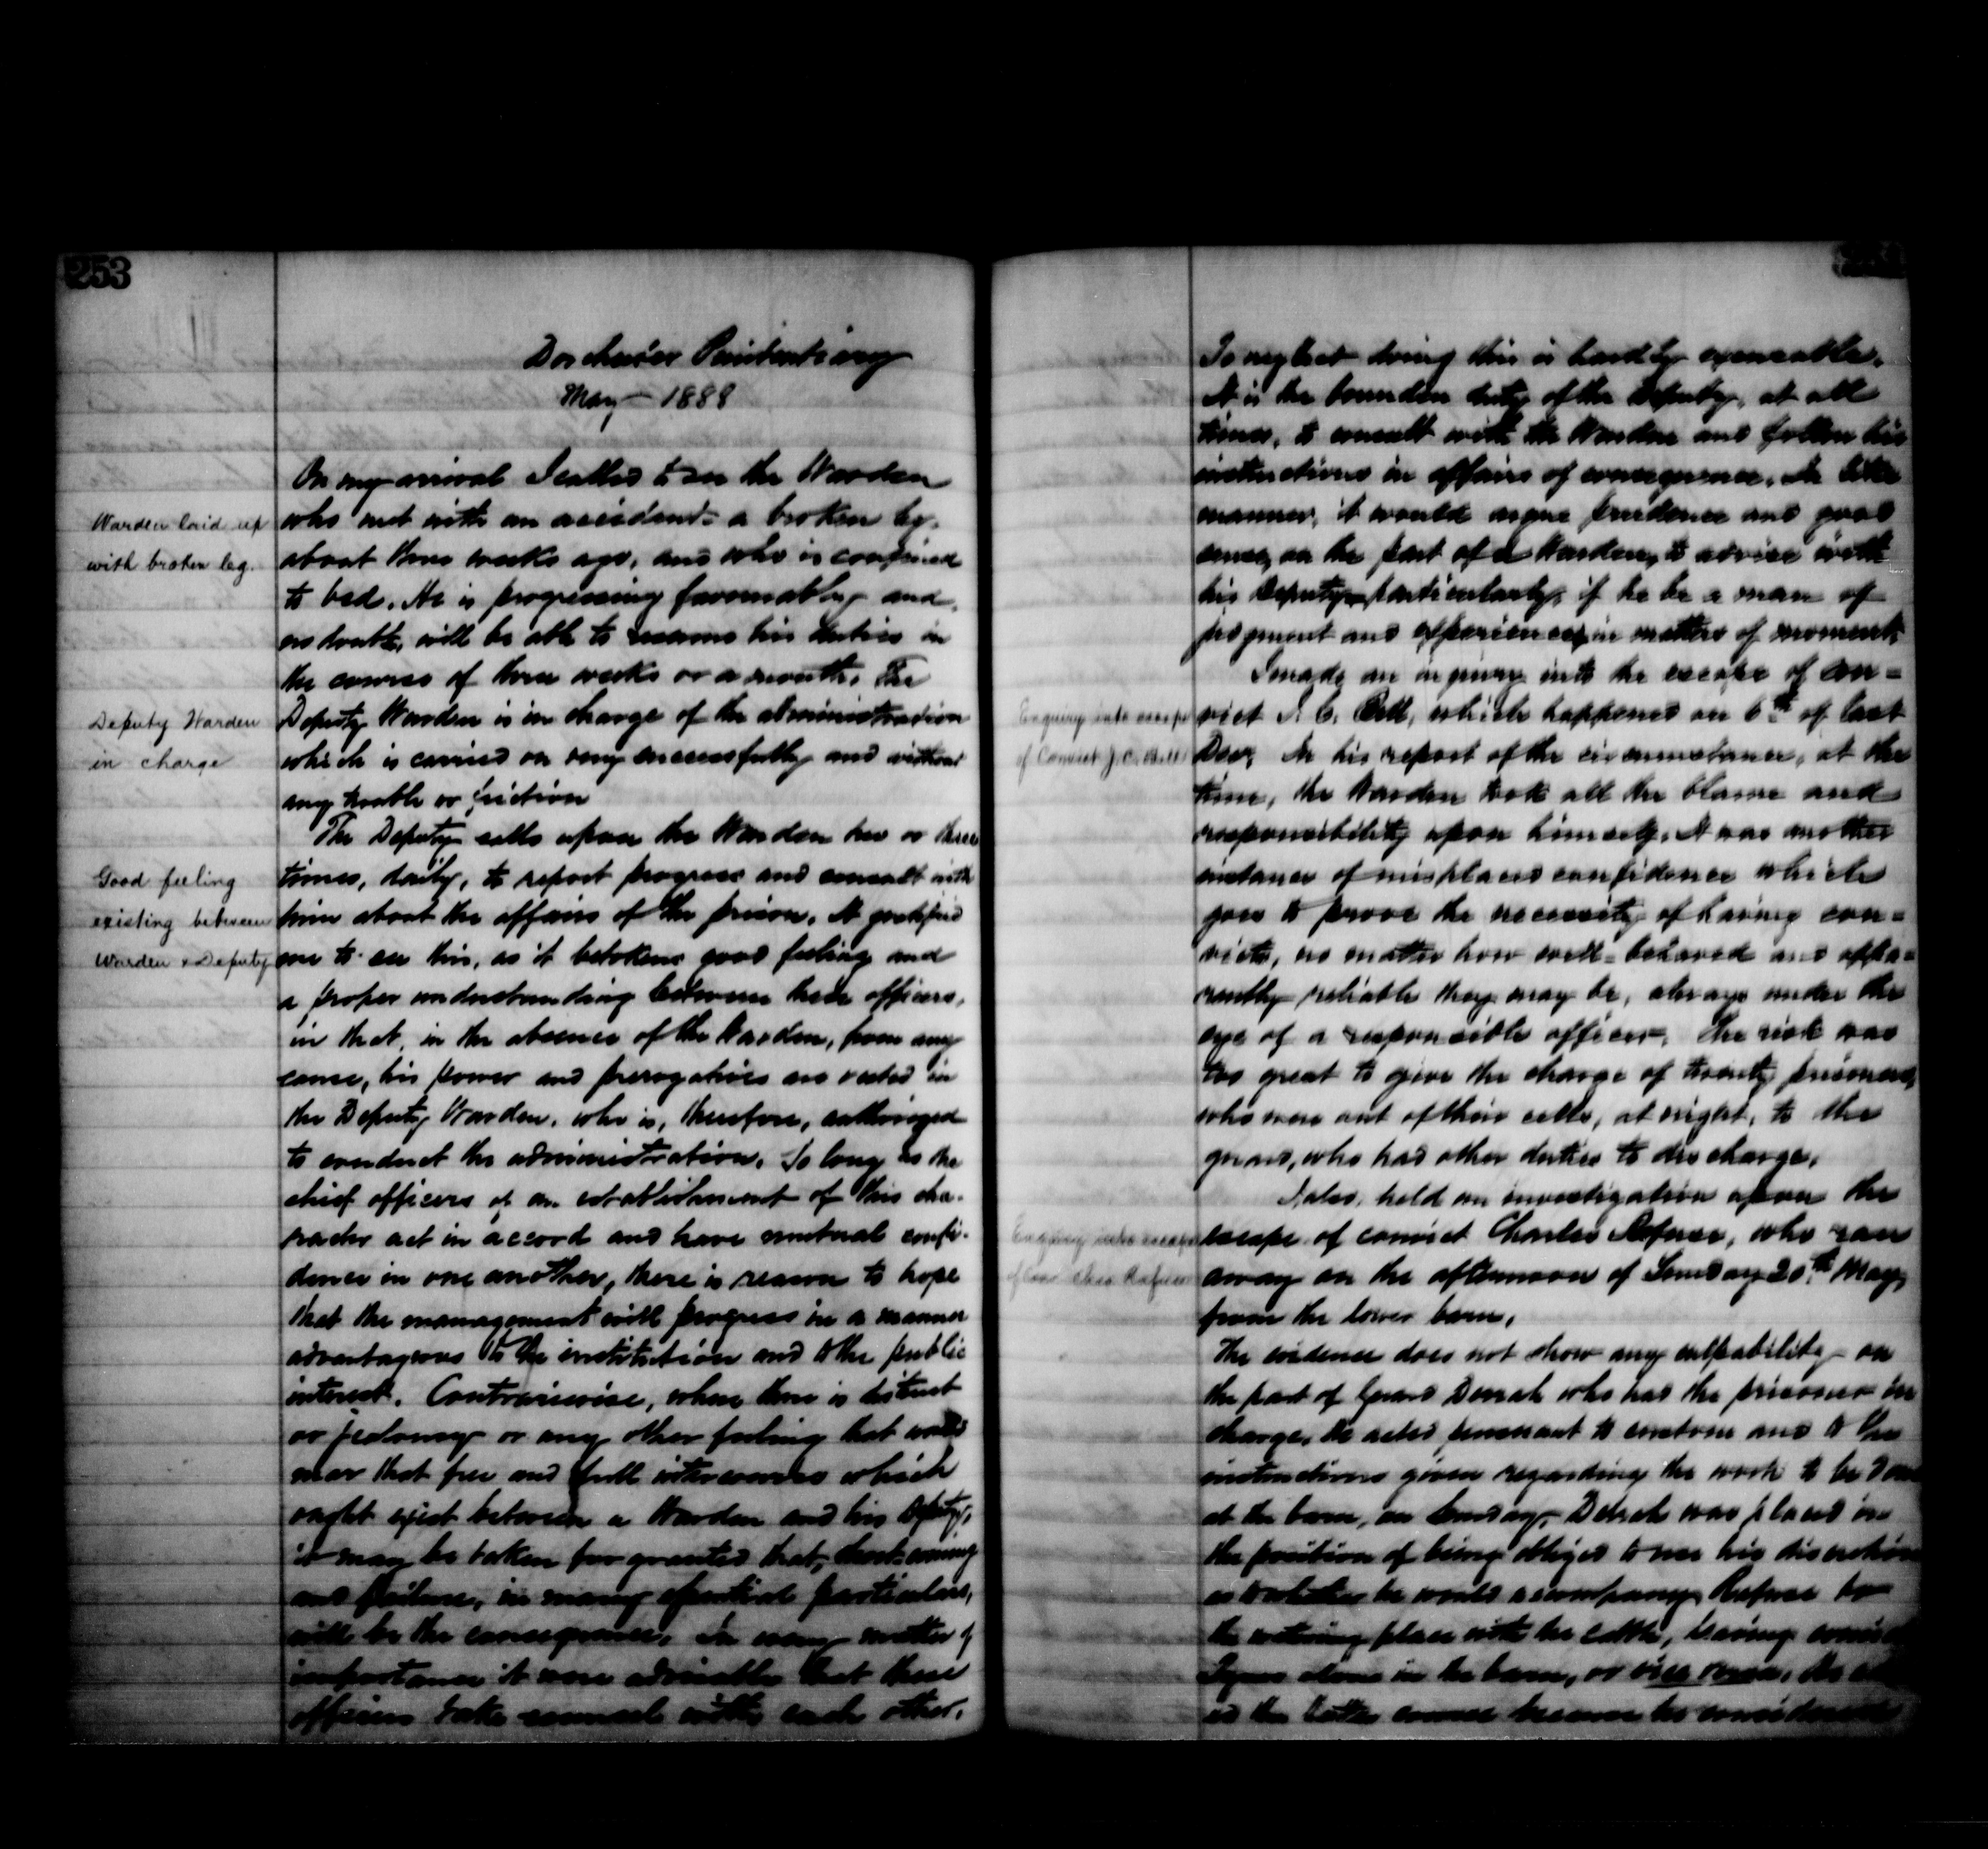 253
Dorchester Penitentiary
May - 1888
On my arrival I called to see the Warden
Warden laid up
who met with an accident - a broken leg -
with broken leg.
about three weeks ago, and who is confined
to bed. He is progressing favourably and,
no doubt, will be able to resume his duties in
the course of three weeks or a month. The
Deputy Warden
in charge
Deputy Warden is in charge of the administration
which is carried on very successfully and without
any trouble or friction
The Deputy calls upon the Warden two or three
Good feeling
existing between
Warden & Deputy
times, daily, to report progress and consult with
him about the affairs of the prison. It gratified
me to see this, as it betokens good feeling and
a proper understanding between these officers,
in that, in the absence of the Warden, from any
cause, his power and prerogatives are vested in
the Deputy Warden, who is, therefore, authorized
to conduct the administration. So long as the
chief officers of an establishment of this cha-
racter act in accord and have mutual confi-
dence in one another, there is reason to hope
that the management will progress in a manner
advantageous to the institution and to the public
interest. Contrariwise, when there is distrust
or jealousy or any other feeling that would
mar that free and full intercourse which
ought exist between a Warden and his Deputy,
it may be taken for granted that, short-coming
and failure, in many essential particulars,
will be the consequence. In every matter of
importance it were advisable that these
officers take counsel with each other.
To neglect doing this is hardly excusable.
It is the bounden duty of the Deputy, at all
times, to consult with the Warden and follow his
instructions in affairs of consequence. In like
manner, it would argue prudence and good
sense, on the part of a Warden, to advise with
his Deputy, particularly, if he be a man of
judgment and experience, in matters of moment.
I made an inquiry into the escape of con=
Enquiry into escape
of Convict J. C. Hill
vict J. C. Hill, which happened on 6th of last
Decr. In his report of the circumstance, at the
time, the Warden took all the blame and
responsibility upon himself. It was another
instance of misplaced confidence which
goes to prove the necessity of having con=
victs, no matter how well-behaved and appa=
rently reliable they may be, always under the
eye of a responsible officer. The risk was
too great to give the charge of twenty prisoners,
who were out of their cells, at night, to the
guard, who had other duties to discharge.
I also, held an investigation upon the
Enquiry into escape
escape of convict Charles Rafuse, who ran
of con. Chas Rafuse
away on the afternoon of Sunday 20th May,
from the lower barn.
The evidence does not show any culpability on
the part of Guard who had the prisoner in
charge. He acted pursuant to custom and to the
instructions given regarding the work to be done
at the barn, on Sunday. was placed in
the position of being obliged to use his discretion
as to whether he would accompany Rafuse to
the watering place with the cattle, leaving convict
alone in the barn, or vice versa. He
the latter course because he considered